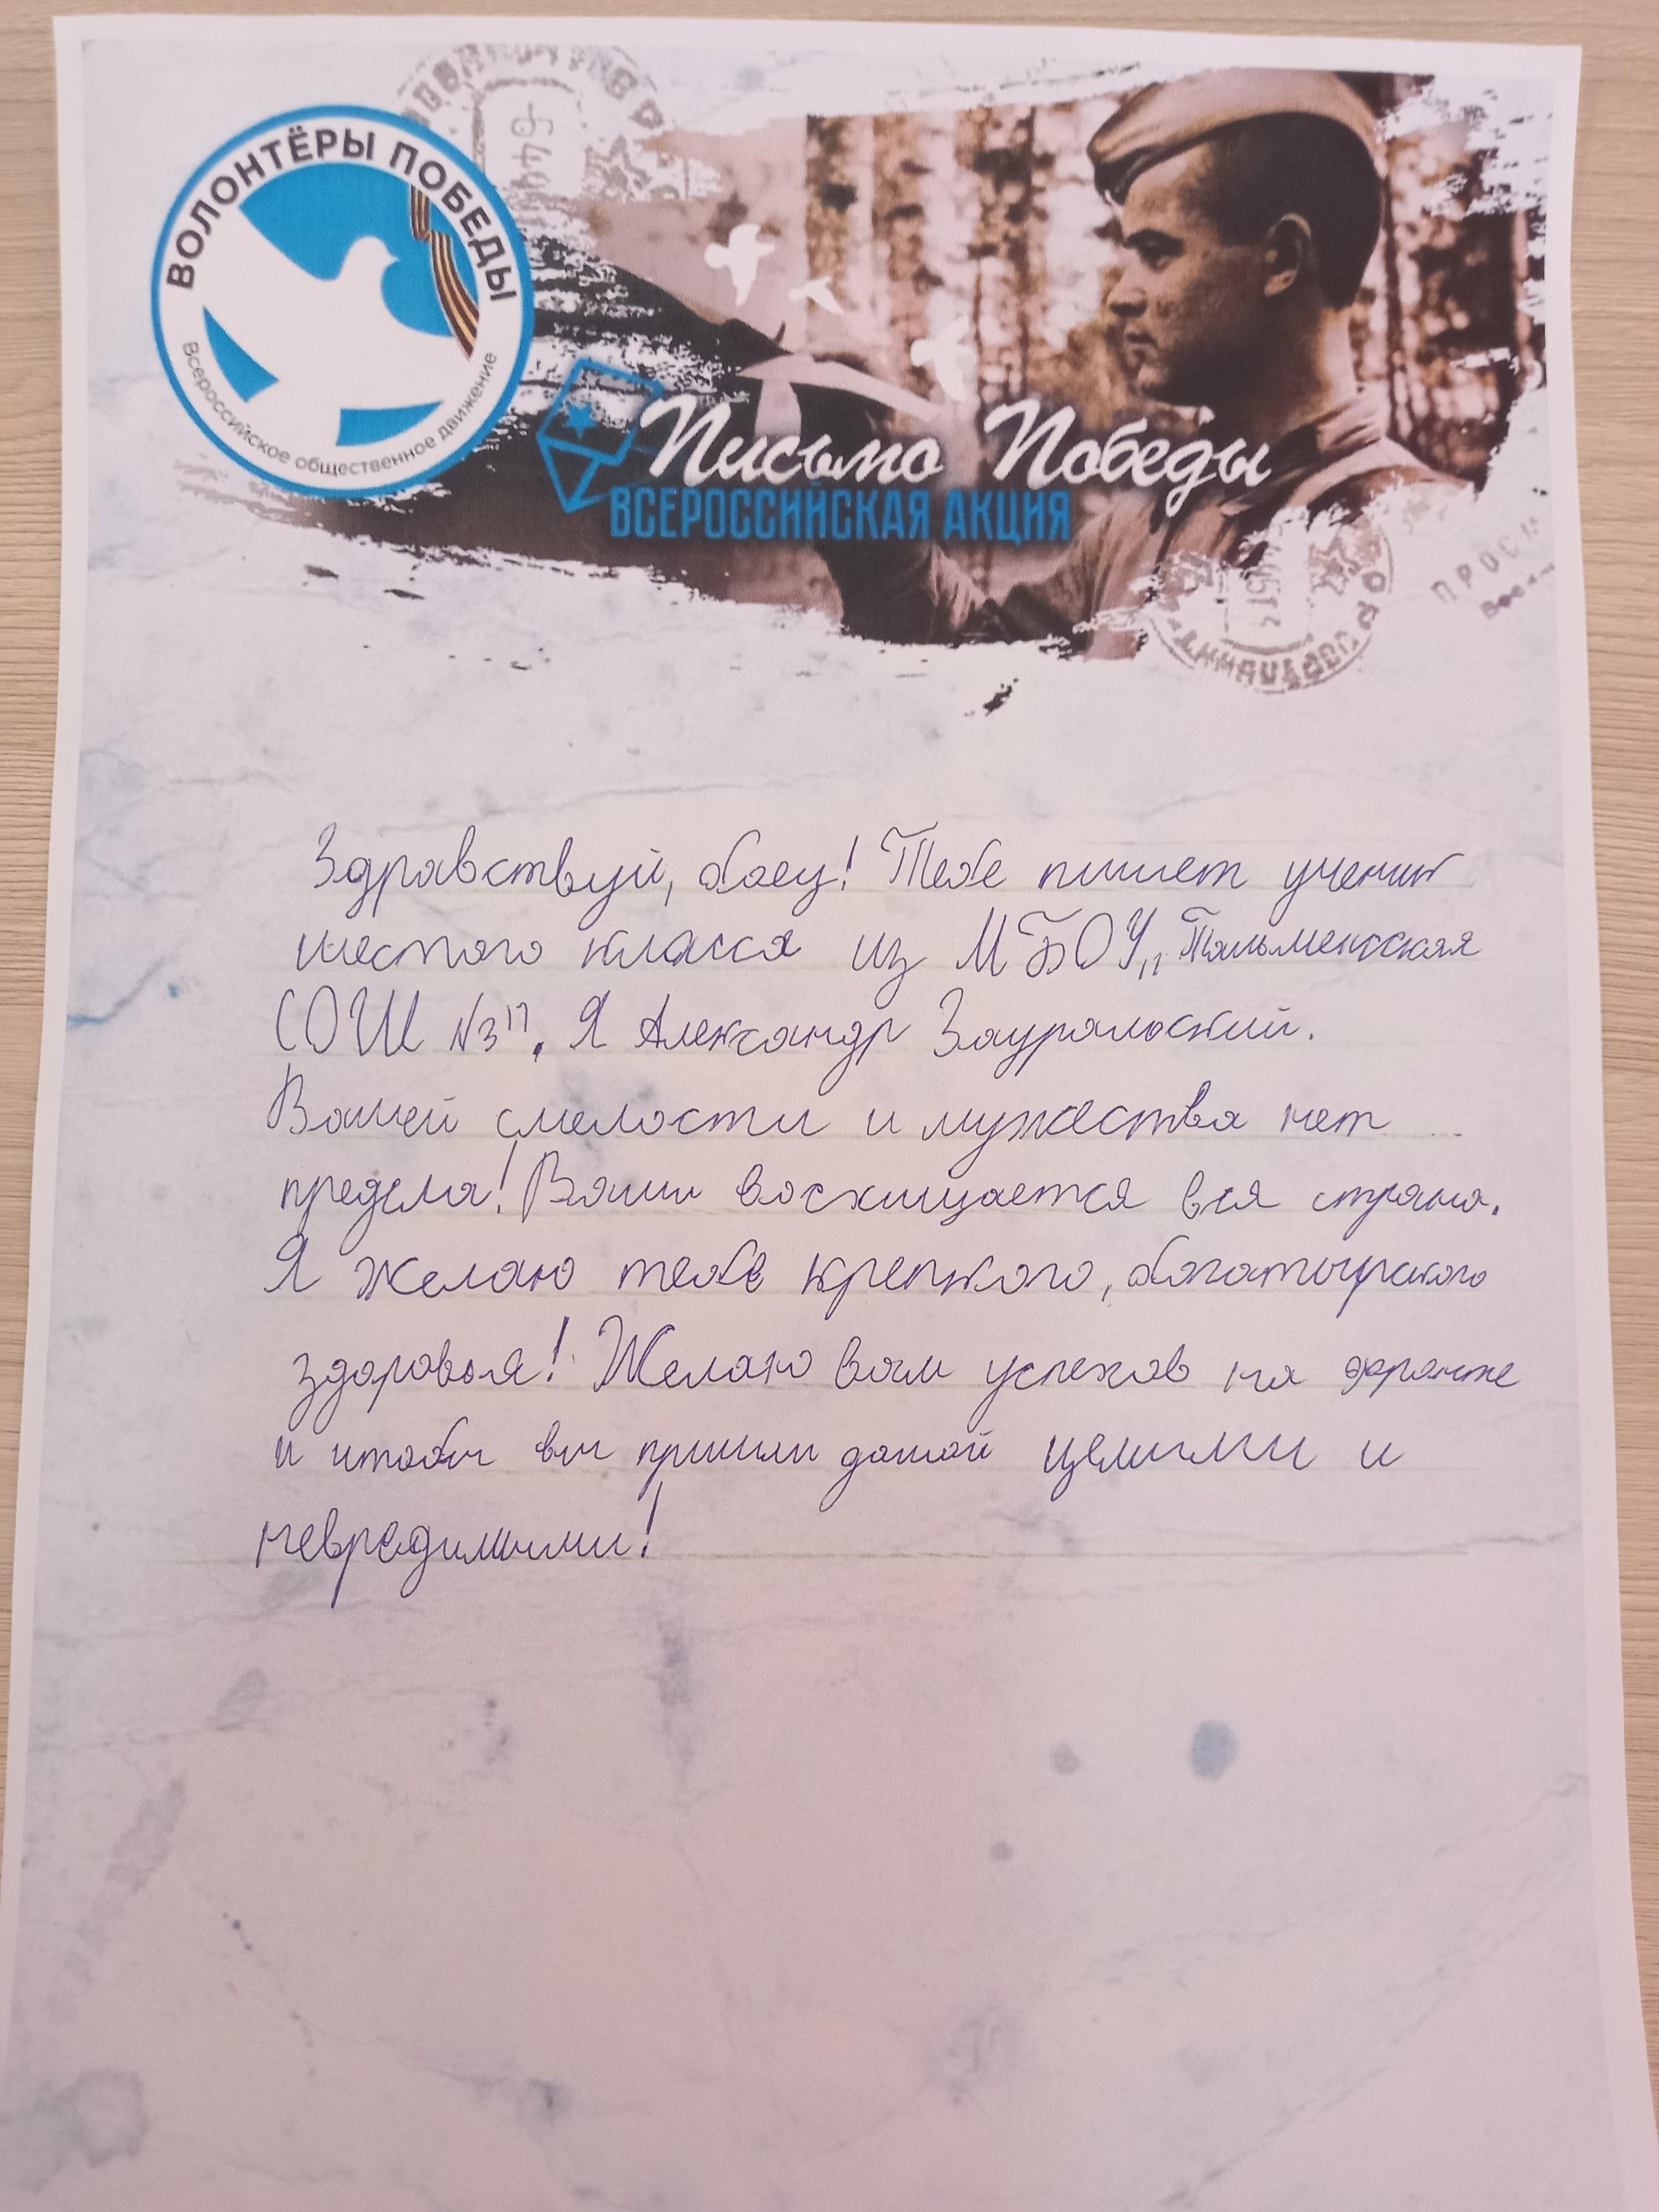 ВОЛОНТЁРЫ ПОБЕДЫ
Всероссийское общественное движение
Письмо Победы
ВСЕРОССИЙСКАЯ АКЦИЯ
Здравствуй, боец! Тебе пишет ученик
шестого класса из МБОУ „Тальменская
СОШ №3". Я Александр Зауральский.
Вашей смелости и мужества нет
предела! Вами восхищается вся страна.
Я желаю тебе крепкого, богатырского
здоровья! Желаю вам успехов на фронте
и чтобы вы пришли домой целыми и
невредимыми!